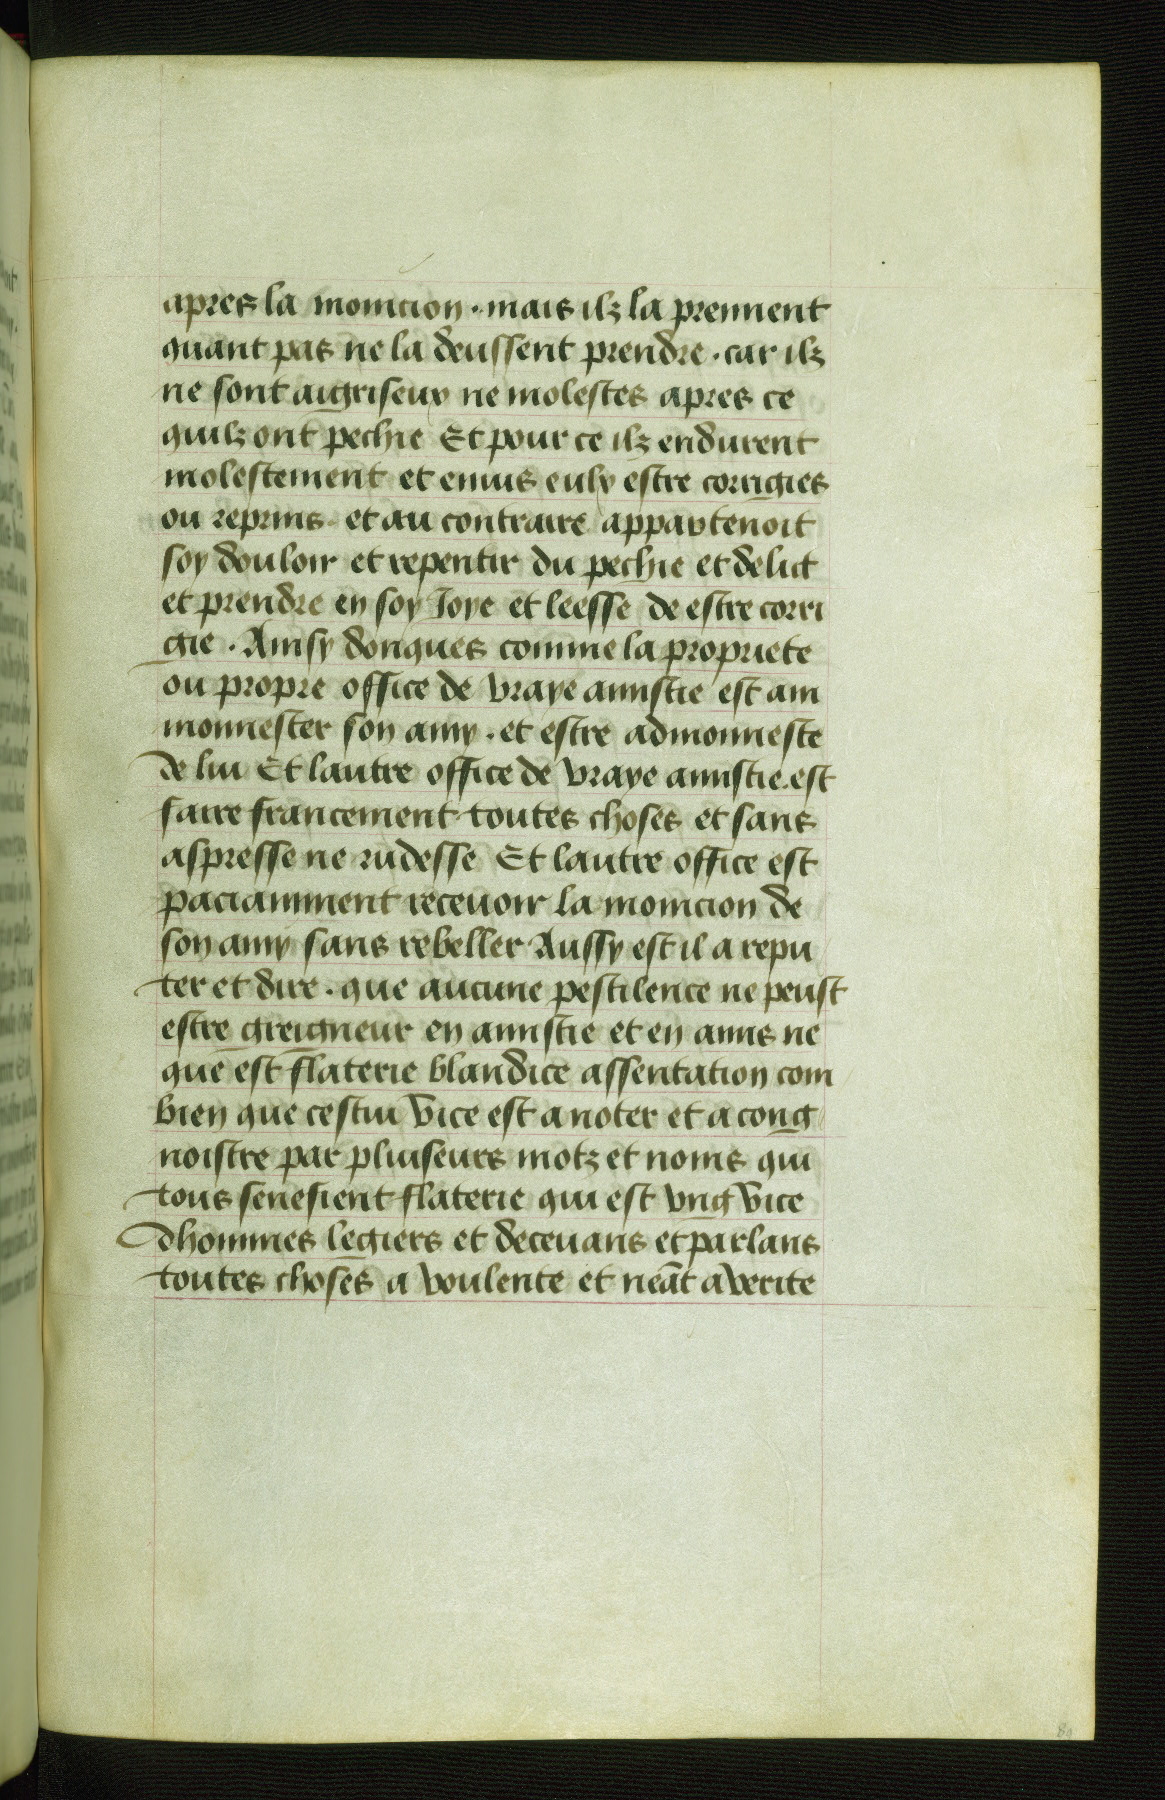 apres la monicion · mais ilz la prennent
quant pas ne la deussent prendre · car ilz
ne sont aigriseux ne molestes apres ce
quilz ont pechie Et pour ce ilz endurent
molestement et enuis eulx estre corrigies
ou reprins et au contraire appartenoit
soy douloir et repentir du pechie et delict
et prendre en soy Ioye et leesse de estre corri
gie · Ainsy donques comme la propriete
ou propre office de vraye amistie est am
monnester son amy · et estre admonneste
de lui Et lautre office de vraye amistie est
faire francement toutes choses et sans
aspresse ne rudesse Et lautre office est
paciamment receuoir la monicion de
son amy sans rebeller Aussy est il a repu
ter et dire · que aucune pestilence ne peust
estre greigneur en amistie et en amis ne
que est flaterie blandice assentation com
bien que cestui vice est a noter et a cong
noistre par pluiseurs motz et noms qui
tous senefient flaterie qui est vng vice
dhommes legiers et deceuans et parlans
toutes choses a voulente et neāt a verite